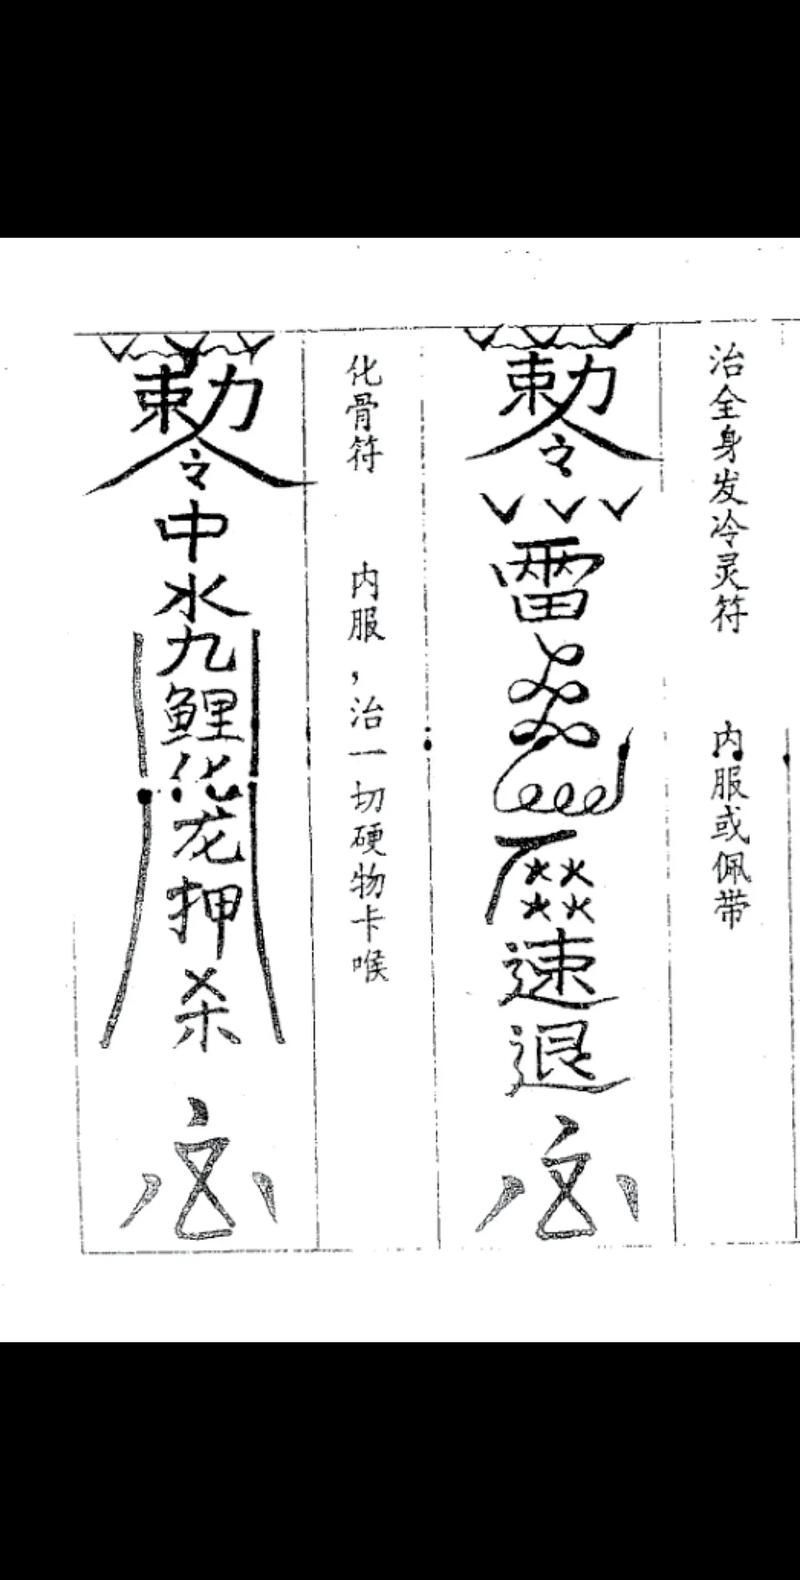 治全身发冷灵符 内服或佩带
敕令雷速退
化骨符 内服，治一切硬物卡喉
敕令中水九鲤化龙押杀